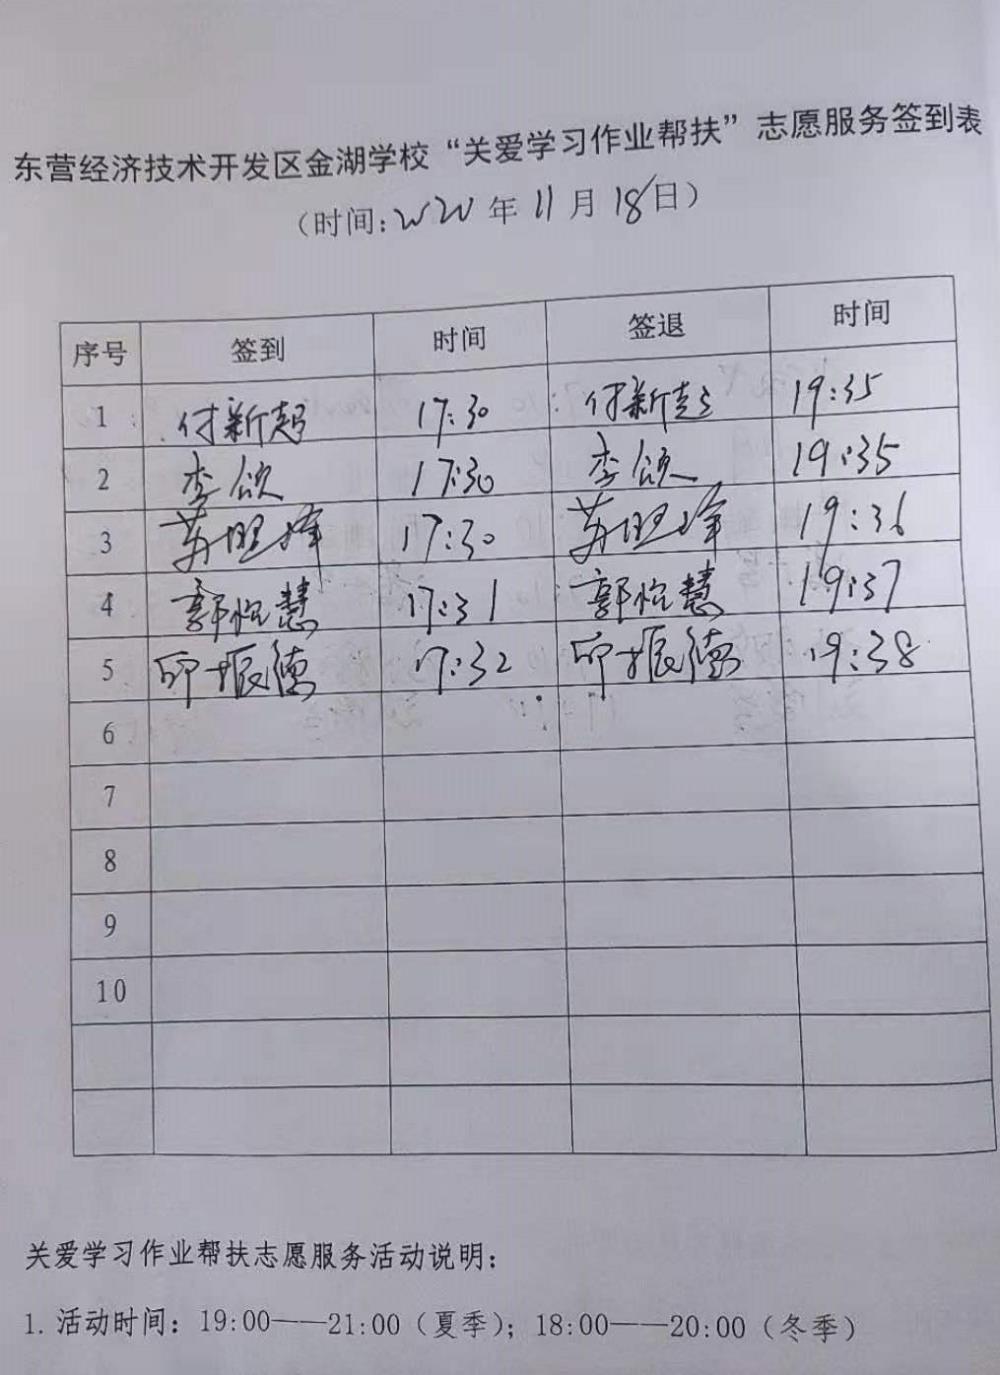 东营经济技术开发区金湖学校“关爱学习作业帮扶”志愿服务签到表
（时间: 年 11 月 18 日）
序号 签到 时间 签退 时间
1 付新超 17:30 付新超 19:35
2 李欣 17:30 李欣 19:35
3 17:30 19:36
4 郭悦慧 17:31 郭悦慧 19:37
5 邱振德 17:32 邱振德 19:38
6
7
8
9
10
关爱学习作业帮扶志愿服务活动说明：
1. 活动时间：19:00——21:00（夏季）；18:00——20:00（冬季）